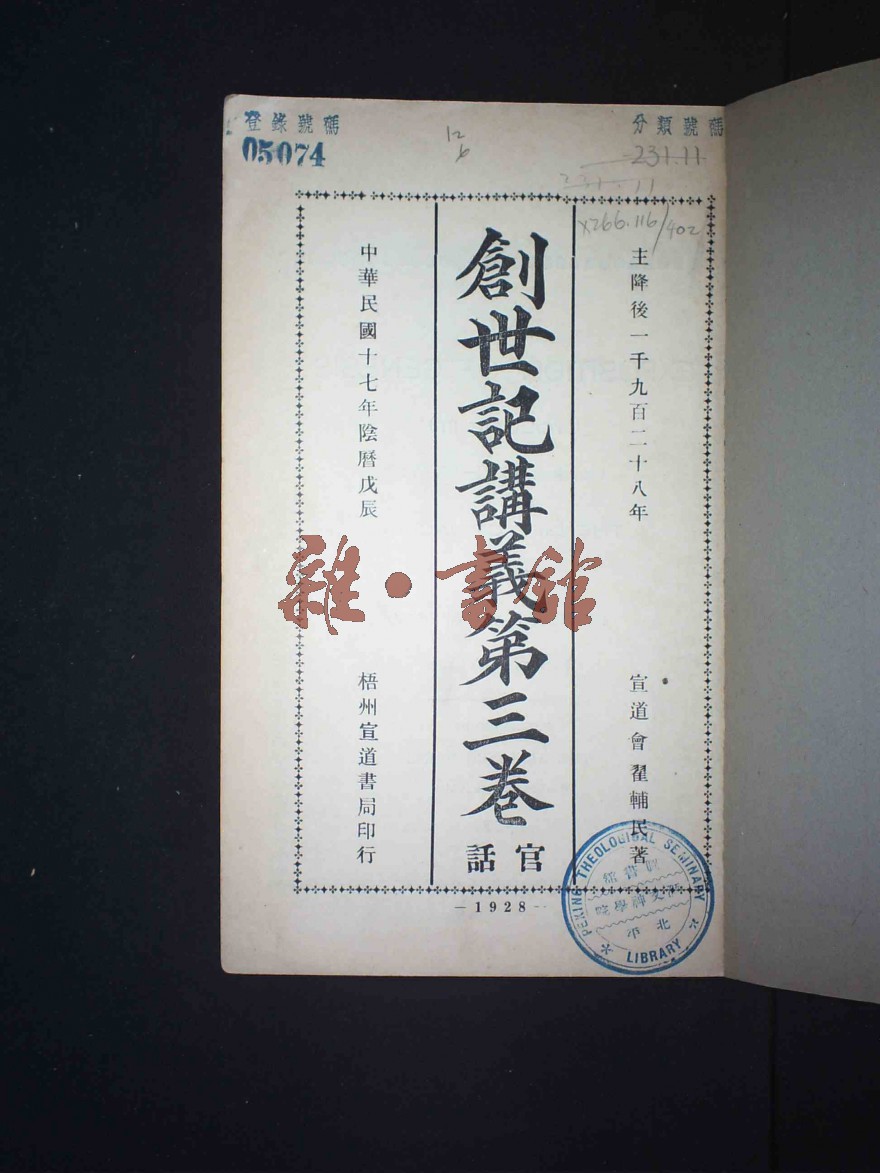 登錄號碼
05074
12
6
分類號碼
231.11
231.11
X266.116/402
主降後一千九百二十八年
宣道會翟輔民著
創世記講義第三卷
官話
中華民國十七年陰曆戊辰
梧州宣道書局印行
-1928-
雜·書館
PEKING THEOLOGICAL SEMINARY
圖書館
神學院
北平
LIBRARY